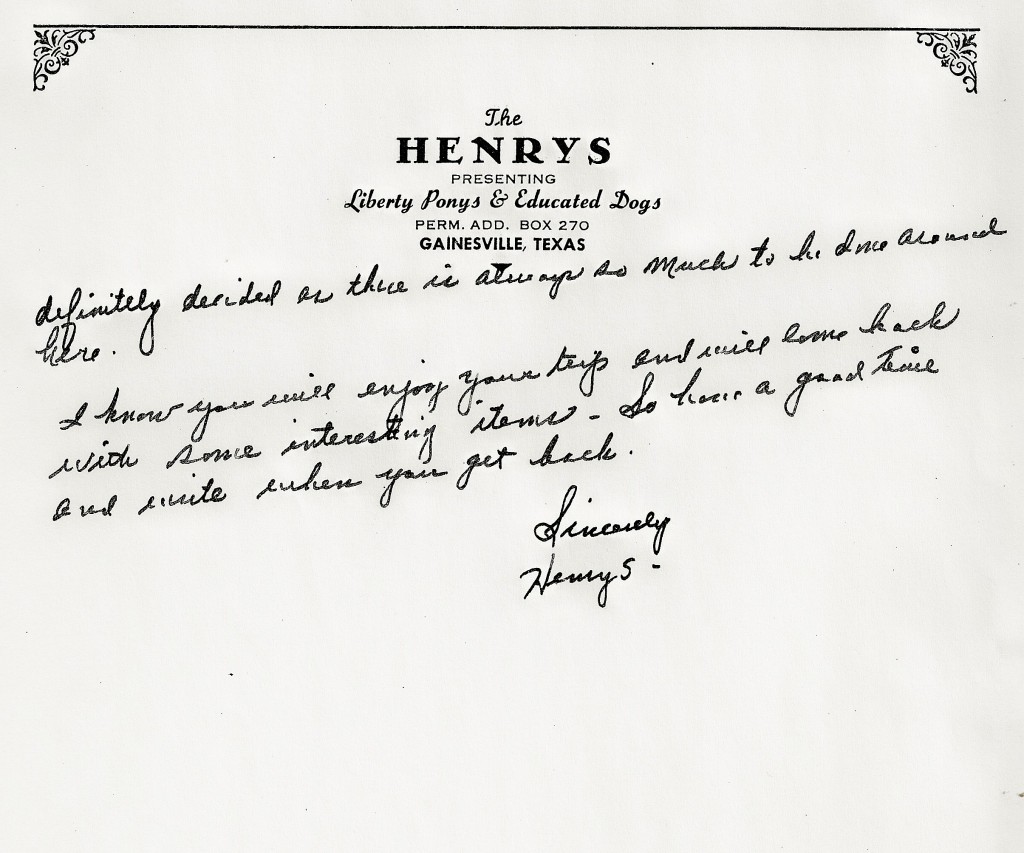 The
HENRYS
PRESENTING
Liberty Ponys & Educated Dogs
PERM. ADD. BOX 270
GAINESVILLE, TEXAS
definitely decided as there is always so much to be done around
here.
I know you will enjoy your trip and will come back
with some interesting items - So have a good time
and write when you get back.
Sincerely
Henrys -